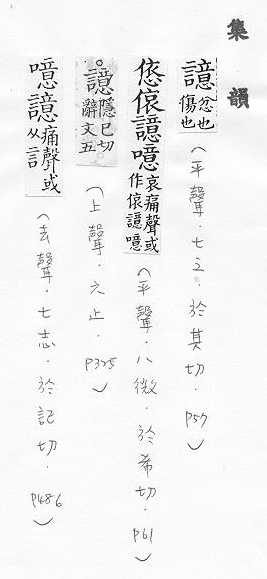 集韻
譩 忿也傷也（平聲．七之．於其切．P57）
㥋偯譩噫 哀痛聲或作偯譩噫（平聲．八微．於希切．P61）
。譩 隱已切辭文五（上聲．六止．P325）
噫譩 痛聲或从言（去聲．七志．於記切．P486）